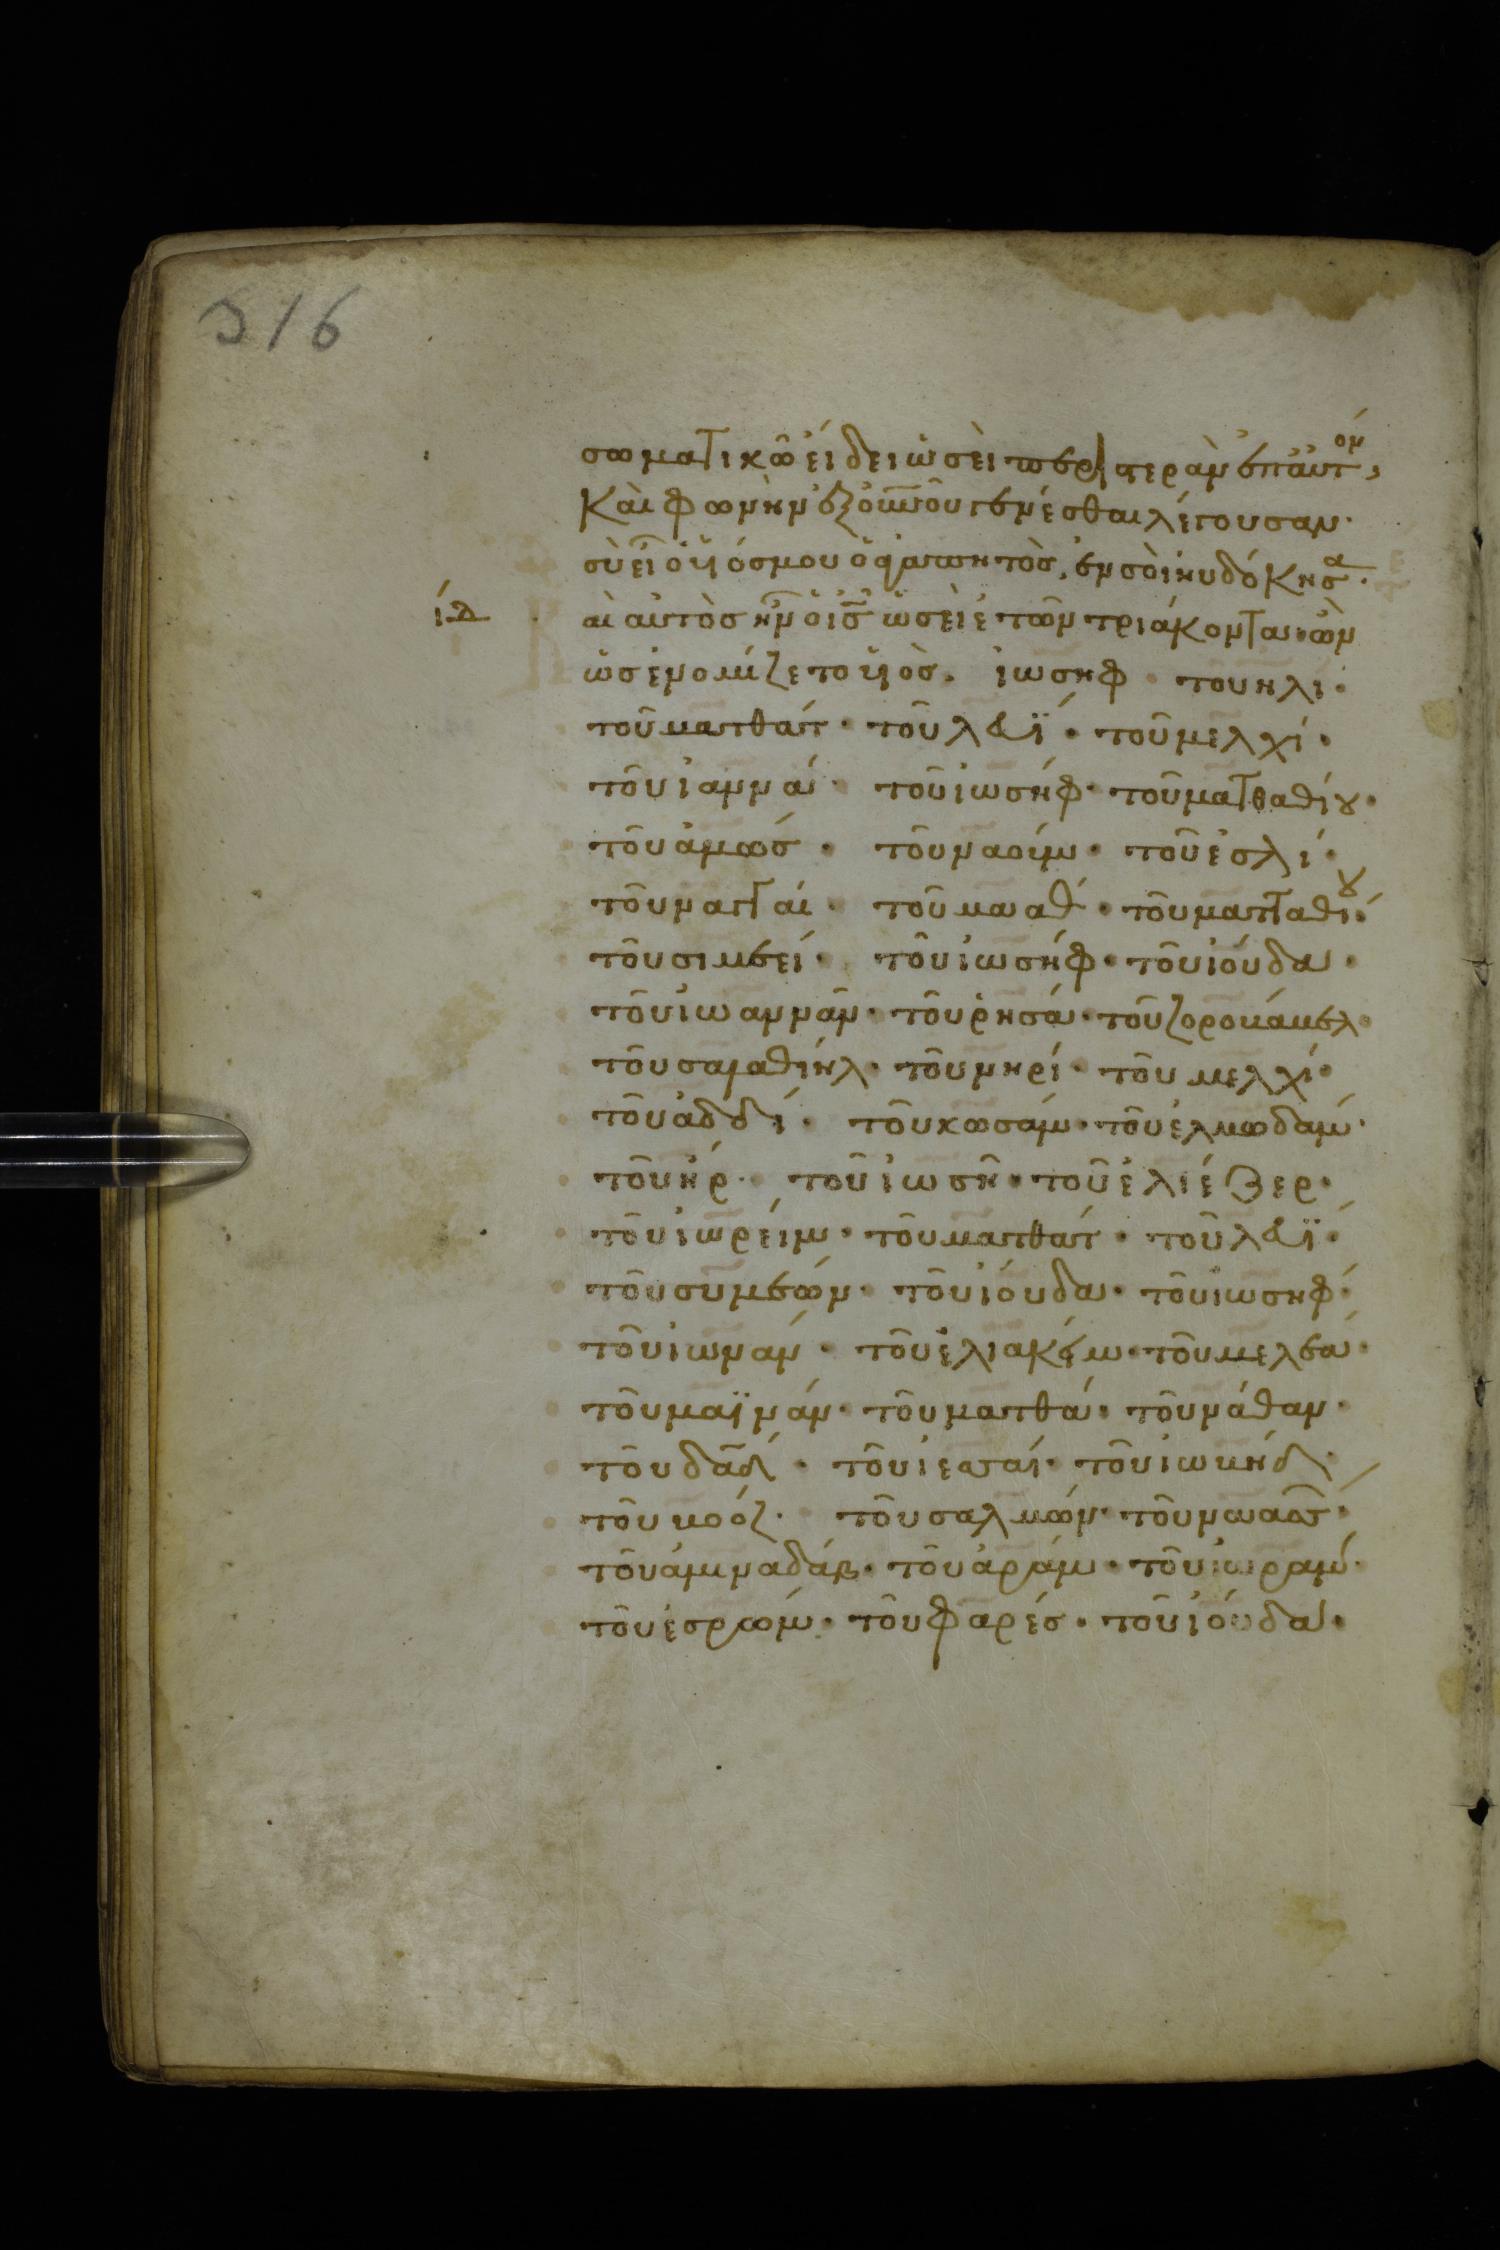 316
σωματικῶ εἴδει ὡσεὶ περιστερὰν ἐπ αὐτὸν,
Καὶ φωνὴν ἐξ οὐνοῦ γενέσθαι λέγουσαν·
σὺ εἶ ὁ υἱόσ μου ὁ ἀγαπητὸσ, ἐν σοὶ ηὐδόκησα·
ιδ αὶ αὐτὸσ ἦν ὁ ισ ὡσεὶ ἐτῶν τριάκοντα· ὢν
ὡσ ἐνομίζετο υἱὸσ. ἰωσηφ · τοῦ ηλι·
τοῦ ματθατ · τοῦ λευΐ · τοῦ μελχί ·
τοῦ ἰαννά · τοῦ ἰωσήφ · τοῦ ματθαθίου ·
τοῦ ἀμώσ · τοῦ ναούμ · τοῦ ἐσλί ·
τοῦ ναγγαί · τοῦ μααθ · τοῦ ματταθίου ·
τοῦ σιμεεί · τοῦ ἰωσήφ · τοῦ ἰούδα ·
τοῦ ἰωαννᾶν · τοῦ ῥησά · τοῦ ζοροβάβελ ·
τοῦ σαλαθιήλ · τοῦ νηρί · τοῦ μελχί ·
τοῦ ἀδδί · τοῦ κωσάμ · τοῦ ἐλμωδάμ ·
τοῦ ἤρ · τοῦ ἰωσῆ · τοῦ ἐλιέζερ ·
τοῦ ἰωρείμ · τοῦ ματθάτ · τοῦ λευΐ ·
τοῦ συμεών · τοῦ ἰούδα · τοῦ ἰωσήφ ·
τοῦ ἰωνάν · τοῦ ἐλιακείμ · τοῦ μελεά ·
τοῦ μαϊνάν · τοῦ ματθά · τοῦ νάθαν ·
τοῦ δαδ · τοῦ ἰεσσαί · τοῦ ἰωβήδ ·
τοῦ βοόζ · τοῦ σαλμών · τοῦ ναασσών ·
τοῦ ἀμιναδάβ · τοῦ ἀράμ · τοῦ ἰωράμ ·
τοῦ ἐσρώμ · τοῦ φαρέσ · τοῦ ἰούδα ·